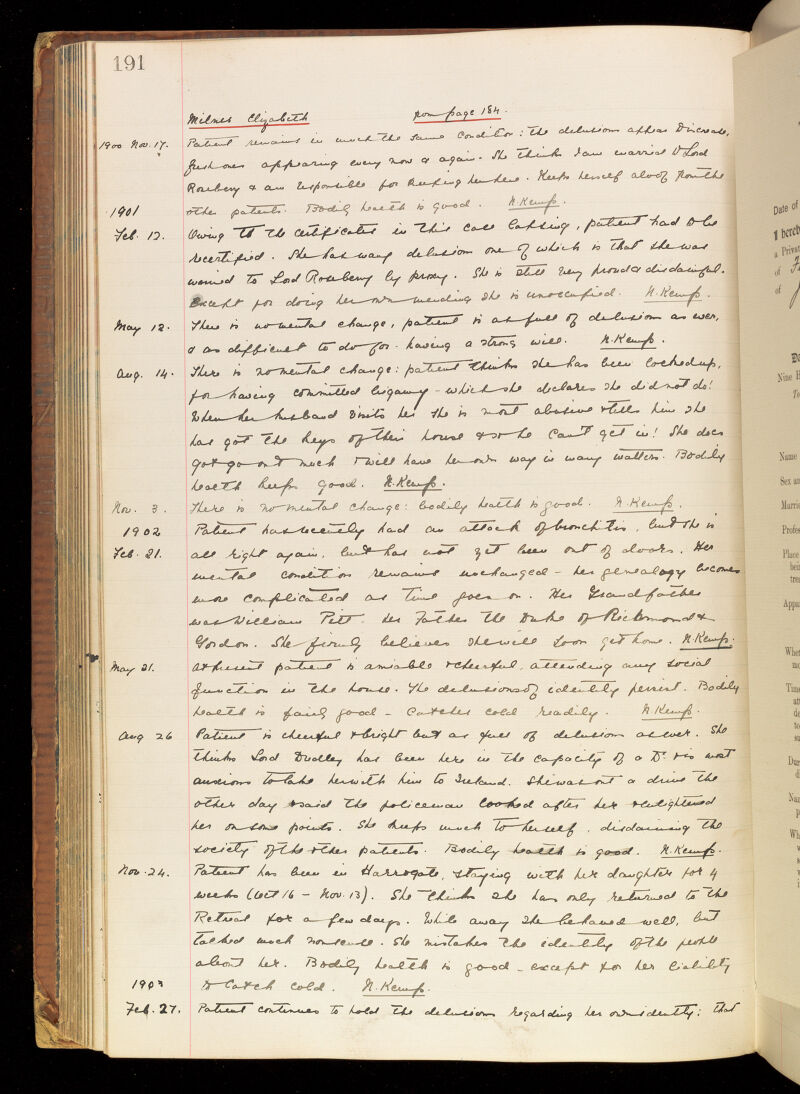 191
Milner Elizabeth from page 184.
1900 Nov. 17. Patient remains in much the same condition: the delusions appear to increase,
fresh ones appearing every now & again. She thinks I am married to Lord
Rosebery & am responsible for keeping her here. Keeps herself aloof from the
other patients. Bodily health is good. N. Kemp.
1901
Feb. 12. Owing to the certificates in this case lapsing, patient had to be
recertified. She has many delusions one of which is that she was
married to Lord Rosebery by proxy. She is still very proud & disdainful.
Except for doing her own mending she is unoccupied. N. Kemp.
May 12. There is no mental change, patient is as full of delusions as ever,
& as difficult to do for - having a strong will. N. Kemp.
Aug. 14. There is no mental change: patient thinks she has been locked up,
for having committed bigamy - which she declares she did not do!
When her husband visits her she is most abusive & tells him she
has got the keys of their house & so he can't get in! She does
not go out much & will have her own way in many matters. Bodily
health keeps good. N. Kemp.
Nov. 3. There is no mental change: bodily health is good. N. Kemp.
1902 Patient has recently had an attack of bronchitis, but she is
Feb. 21. all right again, but has not yet been out of doors. Her
mental condition remains unchanged - her genealogy becomes
more complicated as time goes on. Her Grandfather
was William Pitt. Her Father the Duke of Richmond &
Gordon. She firmly believes she will soon get home. N. Kemp.
May 21. At present patient is amiable & cheerful, attending any social
function in the house. The delusions of identity persist. Bodily
health is fairly good - catches cold readily. N. Kemp.
Aug 26 Patient is cheerful & bright but as full of delusions as ever. She
thinks Lord Dudley has been here in the capacity of a Dr. & is most
anxious to take her with him to Ireland. She was out a drive the
other day & said the policeman looked after her & enlightened
her on some points. She keeps much to herself, disdaining the
society of the other patients. Bodily health is good. N. Kemp.
Nov. 24. Patient has been in Harrogate, staying with her daughter for 4
weeks (Oct 16 - Nov. 13). She thinks she has only returned to the
Retreat for a few days. While away she behaved well, but
talked much nonsense. She mistakes the identity of the people
about her. Bodily health is good - except for her liability
1903 to catch cold. N. Kemp.
Feb. 27. Patient continues to hold the delusions regarding her own identity; that
Date of
I hereb
a Privat
of
of
Nine
Name
Sex an
Marri
Profes
Place
bei
tre
Appa
Whet
Time
Dur
Na
Wh